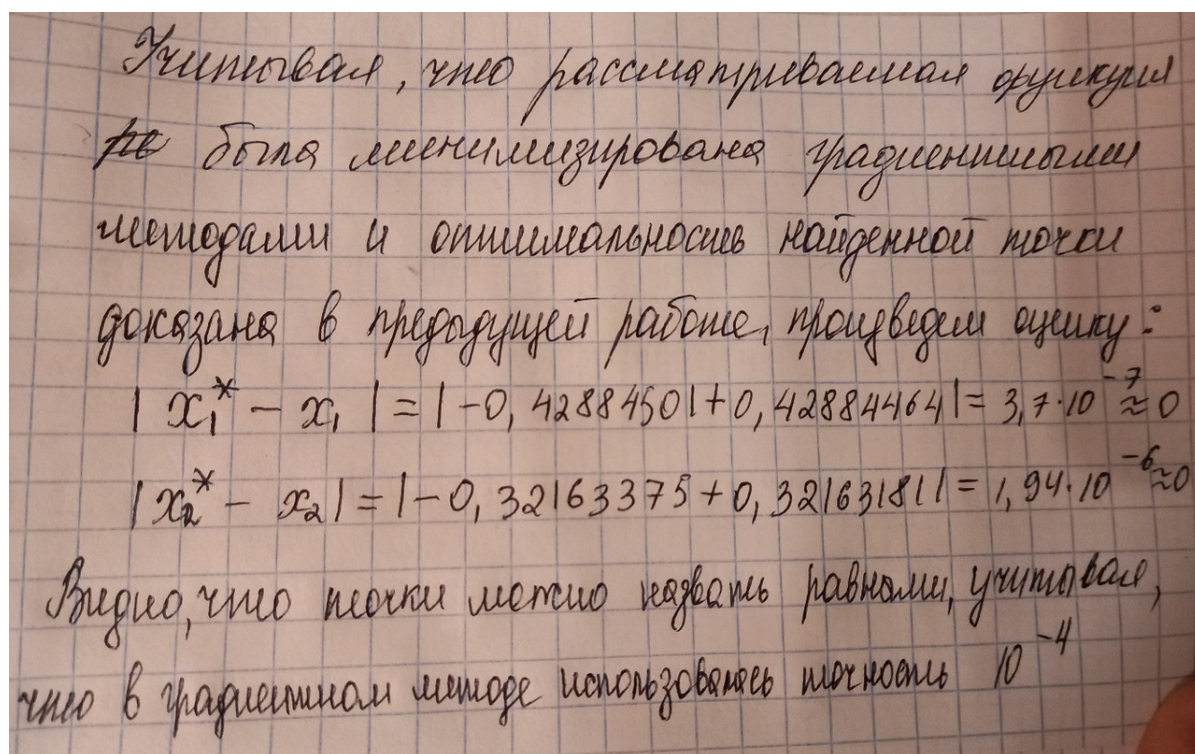 Учитывая, что рассматриваемая функция
была минимизирована градиентными
методами и оптимальность найденной точки
доказана в предыдущей работе, произведем оценку:
| x₁* − x₁ | = | −0,42884501 + 0,42884464 | = 3,7·10⁻⁷ ≈ 0
| x₂* − x₂ | = | −0,32163375 + 0,32163181 | = 1,94·10⁻⁶ ≈ 0
Видно, что точки можно назвать равными, учитывая,
что в градиентном методе использовалась точность 10⁻⁴